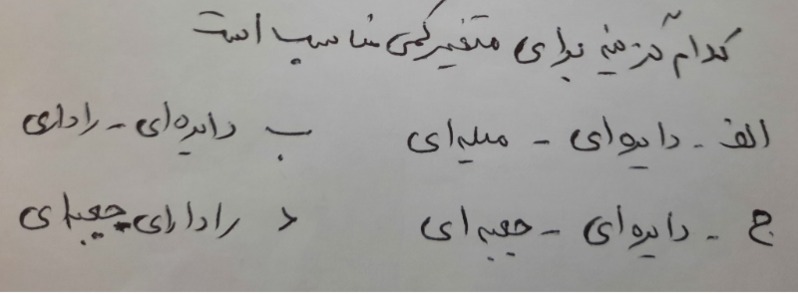 کدام گزینه برای متغیر کمی مناسب است
الف - دایره‌ای - میله‌ای ب دایره‌ای - راداری
ج - دایره‌ای - جعبه‌ای د راداری جعبه‌ای